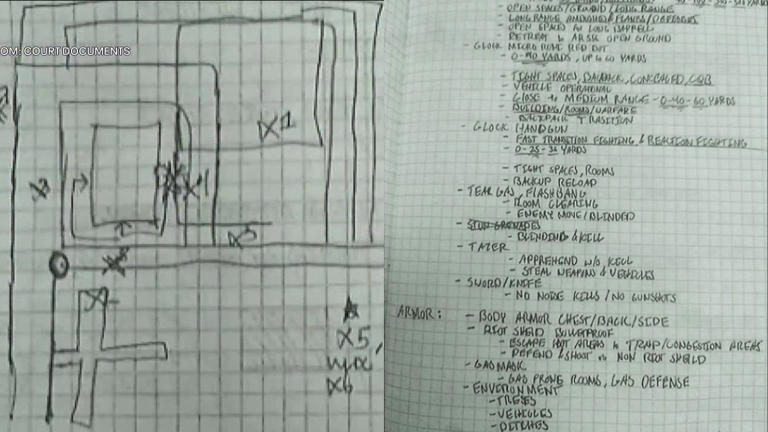 OM: COURT DOCUMENTS
X1
X5
X6
- OPEN SPACES/GROUND/LONG RANGE
- LONG RANGE
- OPEN SPACES
OPEN GROUND
- GLOCK MICRO RONI RED DOT
- 0-40 YARDS, UP TO 60 YARDS
- TIGHT SPACES, CONCEALED, CQB
- VEHICLE OPERATIONAL
- CLOSE to MEDIUM RANGE - 0-40-60 YARDS
- BUILDING/ROOMS/WARFARE
- BACKPACK TRASITION
- GLOCK HANDGUN
- FAST TRANSITION FIGHTING & REACTION FIGHTING
- 0-25-35 YARDS
- TIGHT SPACES, ROOMS
- BACKUP RELOAD
- TEAR GAS, FLASHBANG
- ROOM CLEARING
- ENEMY MOVE/BLINDED
- STUN GRENADES
- BLINDING & KILL
- TAZER
- APPREHEND W/O KILL
- STEAL WEAPINS & VEHICLES
- SWORD/KNIFE
- NO NOISE KILLS/NO GUNSHOTS
ARMOR: - BODY ARMOR CHEST/BACK/SIDE
- RIOT SHEILD BULLETPROOF
- ESCAPE HOT AREAS & TRAP/CONGESTION AREAS
- DEFEND & SHOOT NON RIOT SHEILD
- GAS MASK
- GAS PRONE ROOMS, GAS DEFENSE
- ENVERONMENT
- TREES
- VEHICLES
- DITCHES